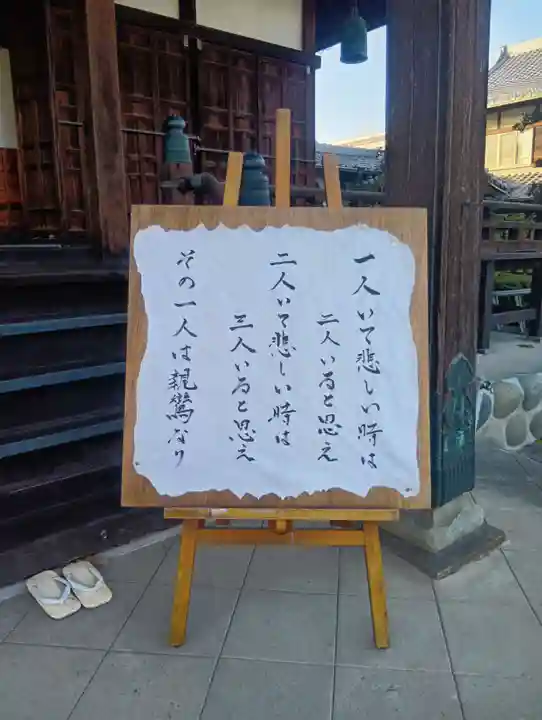 一人いて悲しい時は
二人いると思え
二人いて悲しい時は
三人いると思え
その一人は親鸞なり